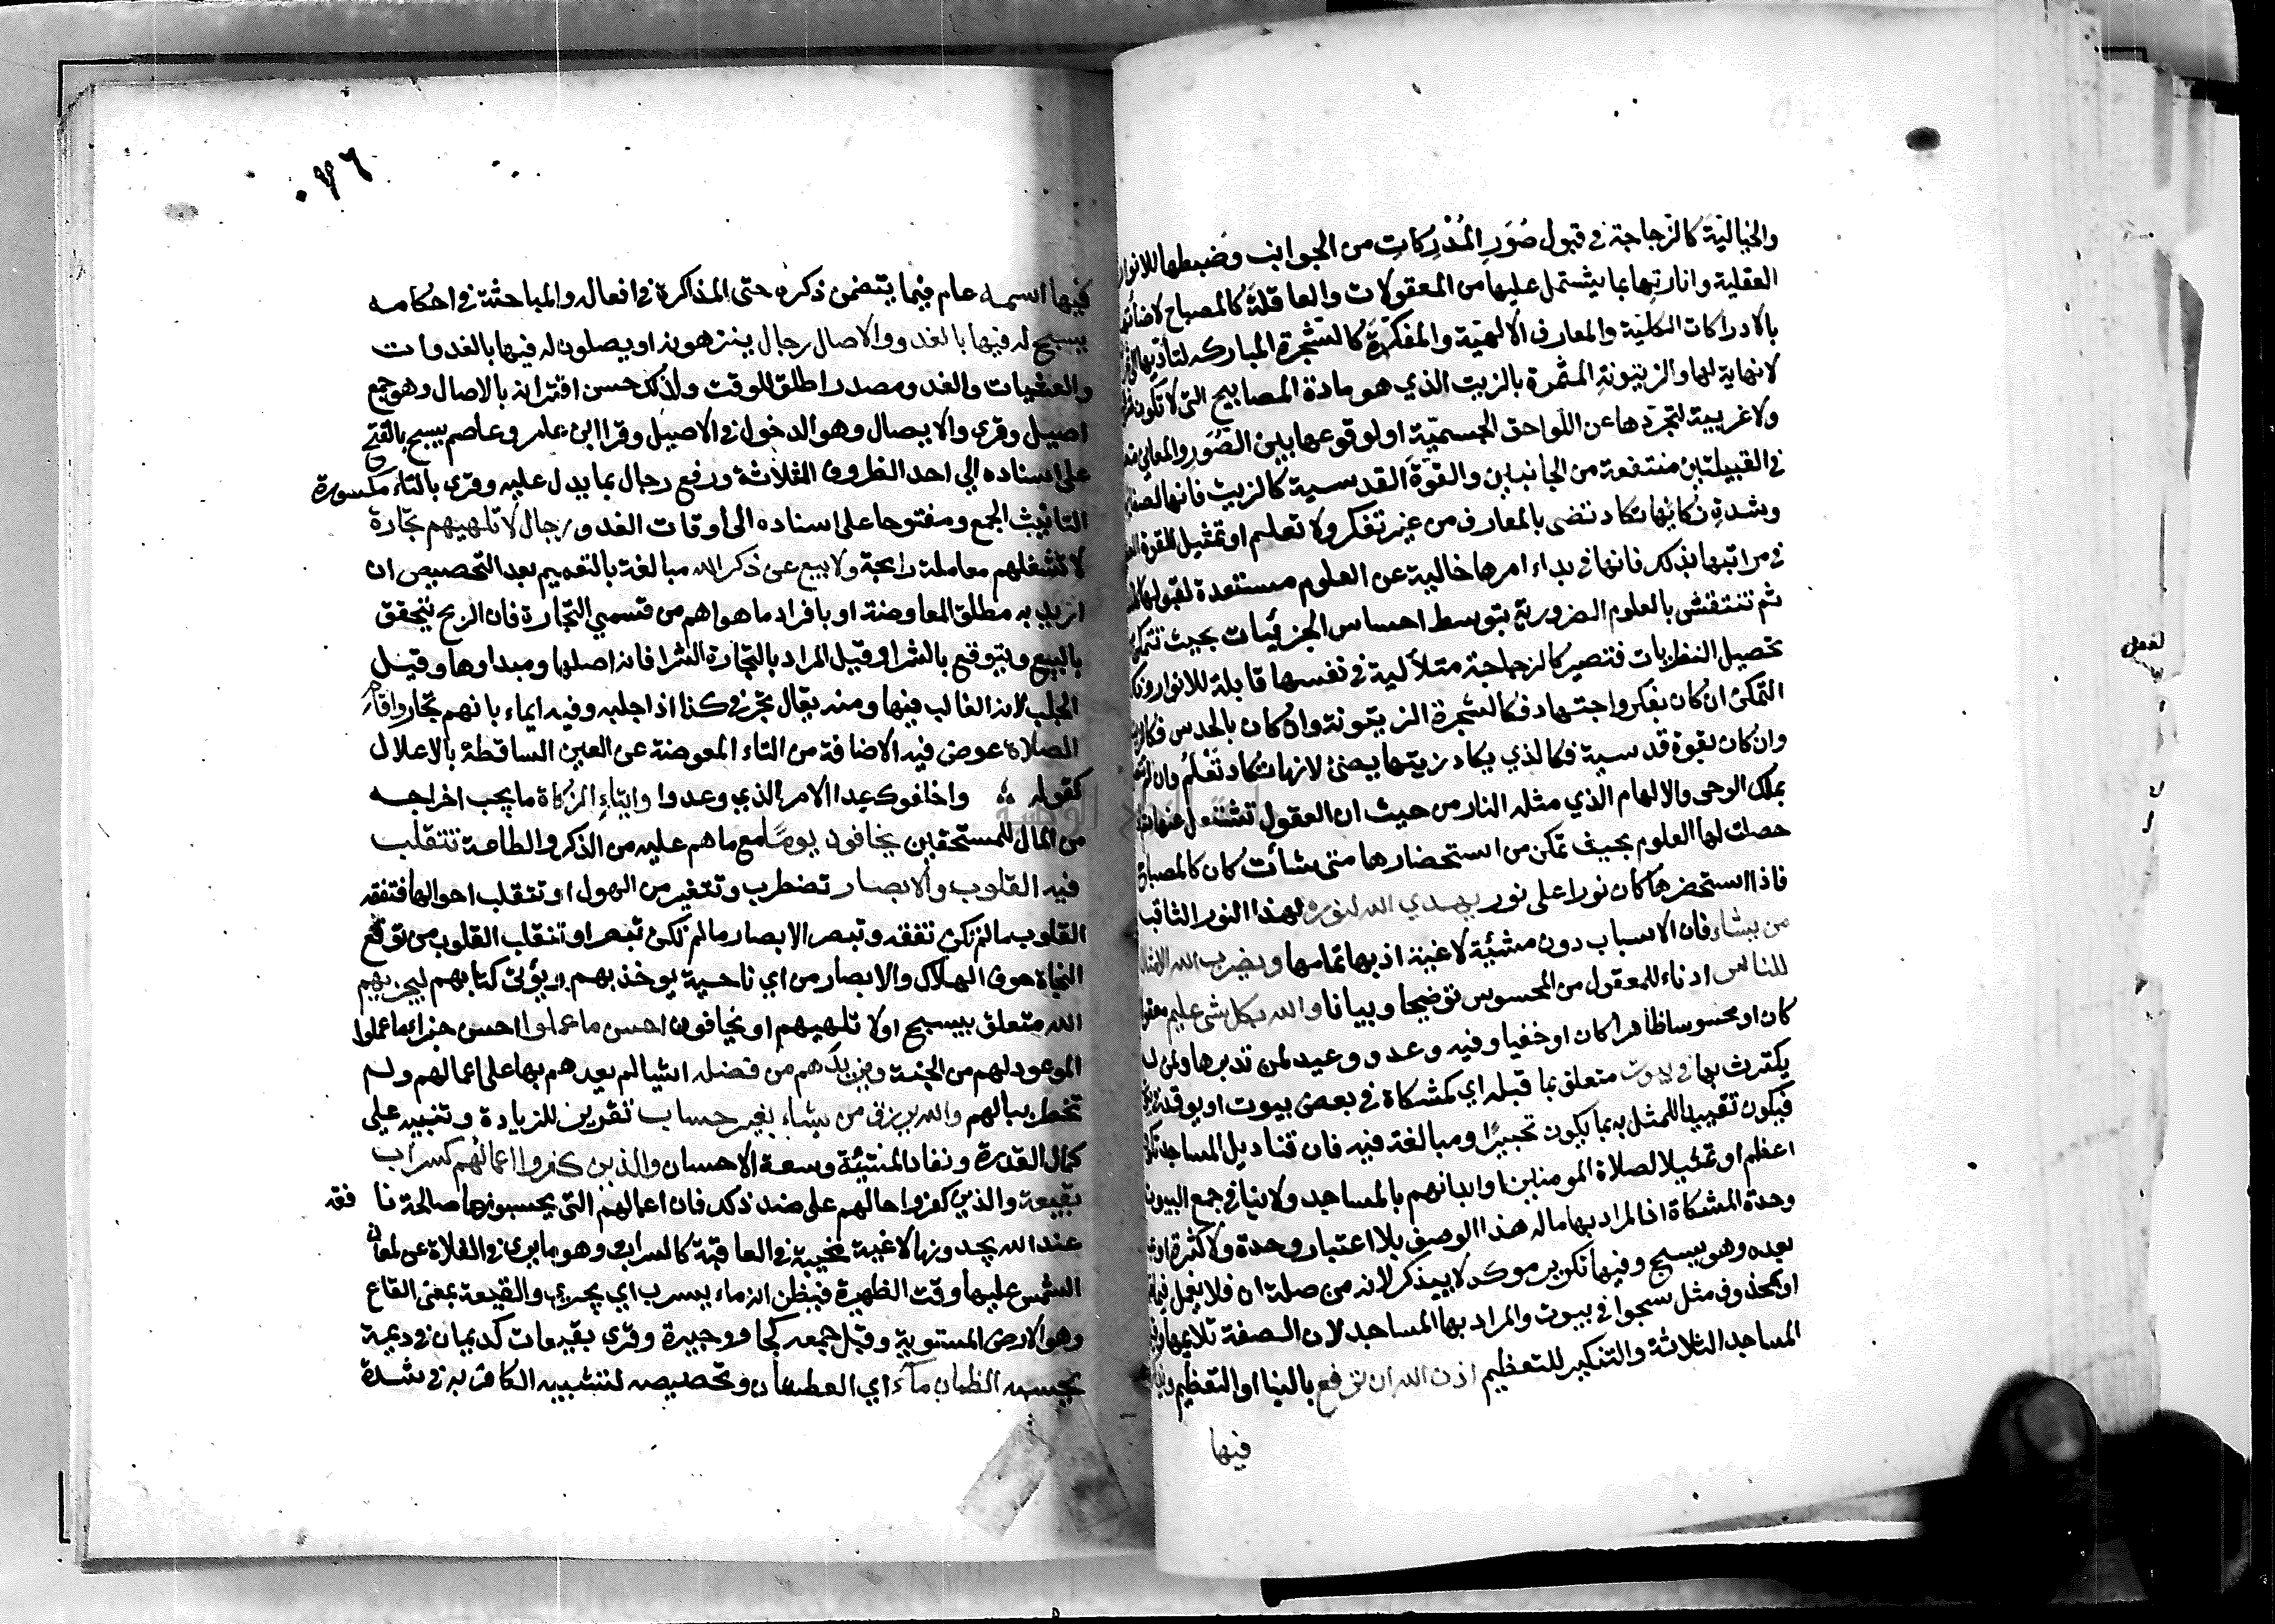 والخيالية كالزجاجة في قبول صُوَرِ المُدْرِكاتِ من الجوانب وضبطها للانوار
العقلية وانارتها بما يشتمل عليها من المعقولات والعاقلة كالمصباح لاضائتها
بالادراكات الكلية والمعارف الالهية والمفكرة كالشجرة المباركه لتأديها الى
لا نهاية لها والزيتونة المثمرة بالزيت الذي هو مادة المصابيح التي لا تكون
ولا غربية لتجردها عن اللواحق الجسمية او لوقوعها بين الصُوَرِ والمعاني
في القبيلتين منتفعة من الجانبين والقوة القدسية كالزيت فانها لصفائها
وشدة ذكائها تكاد تضئ بالمعارف من غير تفكر ولا تعلم او تمثيل للقوة
في مراتبها بذلك فانها في بداء امرها خالية عن العلوم مستعدة لقبولها
ثم تنتقش بالعلوم الضرورية بتوسط احساس الجزئيات بحيث تتمكن
تحصيل النظريات فتصير كالزجاجة متلألئة في نفسها قابلة للانوار
التمكن ان كان بفكر واجتهاد فكالشجرة الزيتونة وان كان بالحدس فكالزيت
وان كان بقوة قدسية فكالذي يكاد زيتها يضئ لانها تكاد تعلم وان لم
بملك الوحى والالهام الذي مثله النار من حيث ان العقول تشتعل عنها
حصلت لها العلوم بحيث تمكن من استحضارها متى شأت كان كالمصباح
فاذا استحضرها كان نورا على نور يهدي الله لنوره لهذا النور الثاقب
من يشاء فان الاسباب دون مشئية لاغية اذ بها تمامها ويضرب الله الامثال
للناس ادناء للمعقول من المحسوس توضيحا وبيانا والله بكل شى عليم
كان او محسوسا ظاهرا كان او خفيا وفيه وعد ووعيد لمن تدبرها ولمن لم
يكترث بها في بيوت متعلق بما قبله اي كمشكاة في بعض بيوت او يوقد
فيكون تقييدا للممثل به بما يكون تحبيرا ومبالغة فيه فان قناديل المساجد تكون
اعظم او تمثيلا لصلاة المومنين او ابدانهم بالمساجد ولا ينافي جمع البيوت
وحدة المشكاة اذ المراد بها ماله هذا الوصف بلا اعتبار وحدة ولا كثرة
بعده وهو يسبح وفيها تكرير موكد لا بيذكر لانه من صلة ان فلا يعمل فيما
او بمحذوف مثل سبحوا في بيوت والمراد بها المساجد لان الصفة تلائمها
المساجد الثلاثة والتنكير للتعظيم اذن الله ان ترفع بالبنا او التعظيم
فيها
فيها اسمه عام فيما يتضمن ذكره حتى المذاكرة في افعاله والمباحثة في احكامه
يسبح له فيها بالغدو والاصال رجال ينزهونه او يصلون له فيها بالغدوات
والعشيات والغدو مصدر اطلق للوقت ولذلك حسن اقترانه بالاصال وهو جمع
اصيل وقرى والايصال وهو الدخول في الاصيل وقرا ابن عامر وعاصم يسبح بالفتح
على اسناده الي احد الظروف الثلاثة ورفع رجال بما يدل عليه وقرى بالتاء مكسورة
التانيث الجمع ومفتوحا على اسناده الى اوقات الغدو رجال لا تلهيهم تجارة
لا تشغلهم معاملة رابحة ولا بيع عن ذكر الله مبالغة بالتعميم بعد التخصيص ان
اريد به مطلق المعاوضة او بافراد ما هو اهم من قسمي التجارة فان الربح يتحقق
بالبيع ويتوقع بالشرا وقيل المراد بالتجارة الشرا فانه اصلها ومبداوها وقيل
الجلب لانه الغالب فيها ومنه يقال تجر في كذا اذا جلبه وفيه ايماء بانهم تجار واقام
الصلاة عوض فيه الاضافة من التاء المعوضة عن العين الساقطة بالاعلال
كقوله واخلفوك عدا الامر الذي وعدوا وايتاء الزكاة ما يجب اخراجه
من المال للمستحقين يخافون يومًا مع ما هم عليه من الذكر والطاعة تتقلب
فيه القلوب والابصار تضطرب وتتغير من الهول او تتقلب احوالها فتفقه
القلوب ما لم تكن تفقه وتبصر الابصار ما لم تكن تبصر او تتقلب القلوب من توقع
النجاة خوف الهلاك والابصار من اي ناحية يوخذ بهم ويؤتى كتابهم ليجزيهم
الله متعلق بيسبح او لا تلهيهم او يخافون احسن ما عملوا احسن جزاء ما عملوا
الموعود لهم من الجنة ويزيدهم من فضله اشيا لم يعدهم بها على اعمالهم ولم
تخطر ببالهم والله يرزق من يشاء بغير حساب تقرير للزيادة وتنبيه على
كمال القدرة ونفاد المشيئة وسعة الاحسان والذين كفروا اعمالهم كسراب
بقيعة والذين كفروا حالهم على ضد ذلك فان اعمالهم التي يحسبونها صالحة نا فعة
عند الله يجدونها لاغية مخيبة في العاقبة كالسراب وهو ما يرى في الفلاة عن لمعان
الشمس عليها وقت الظهيرة فيظن انه ماء يسرب اي يجري والقيعة بمعنى القاع
وهو الارض المستوية وقيل جمعه كجار وجيرة وقرى بقيعات كديمات في ديمة
يحسبه الظمان مآء اي العطشان وتخصيصه لتشبيه الكافر به في شدة